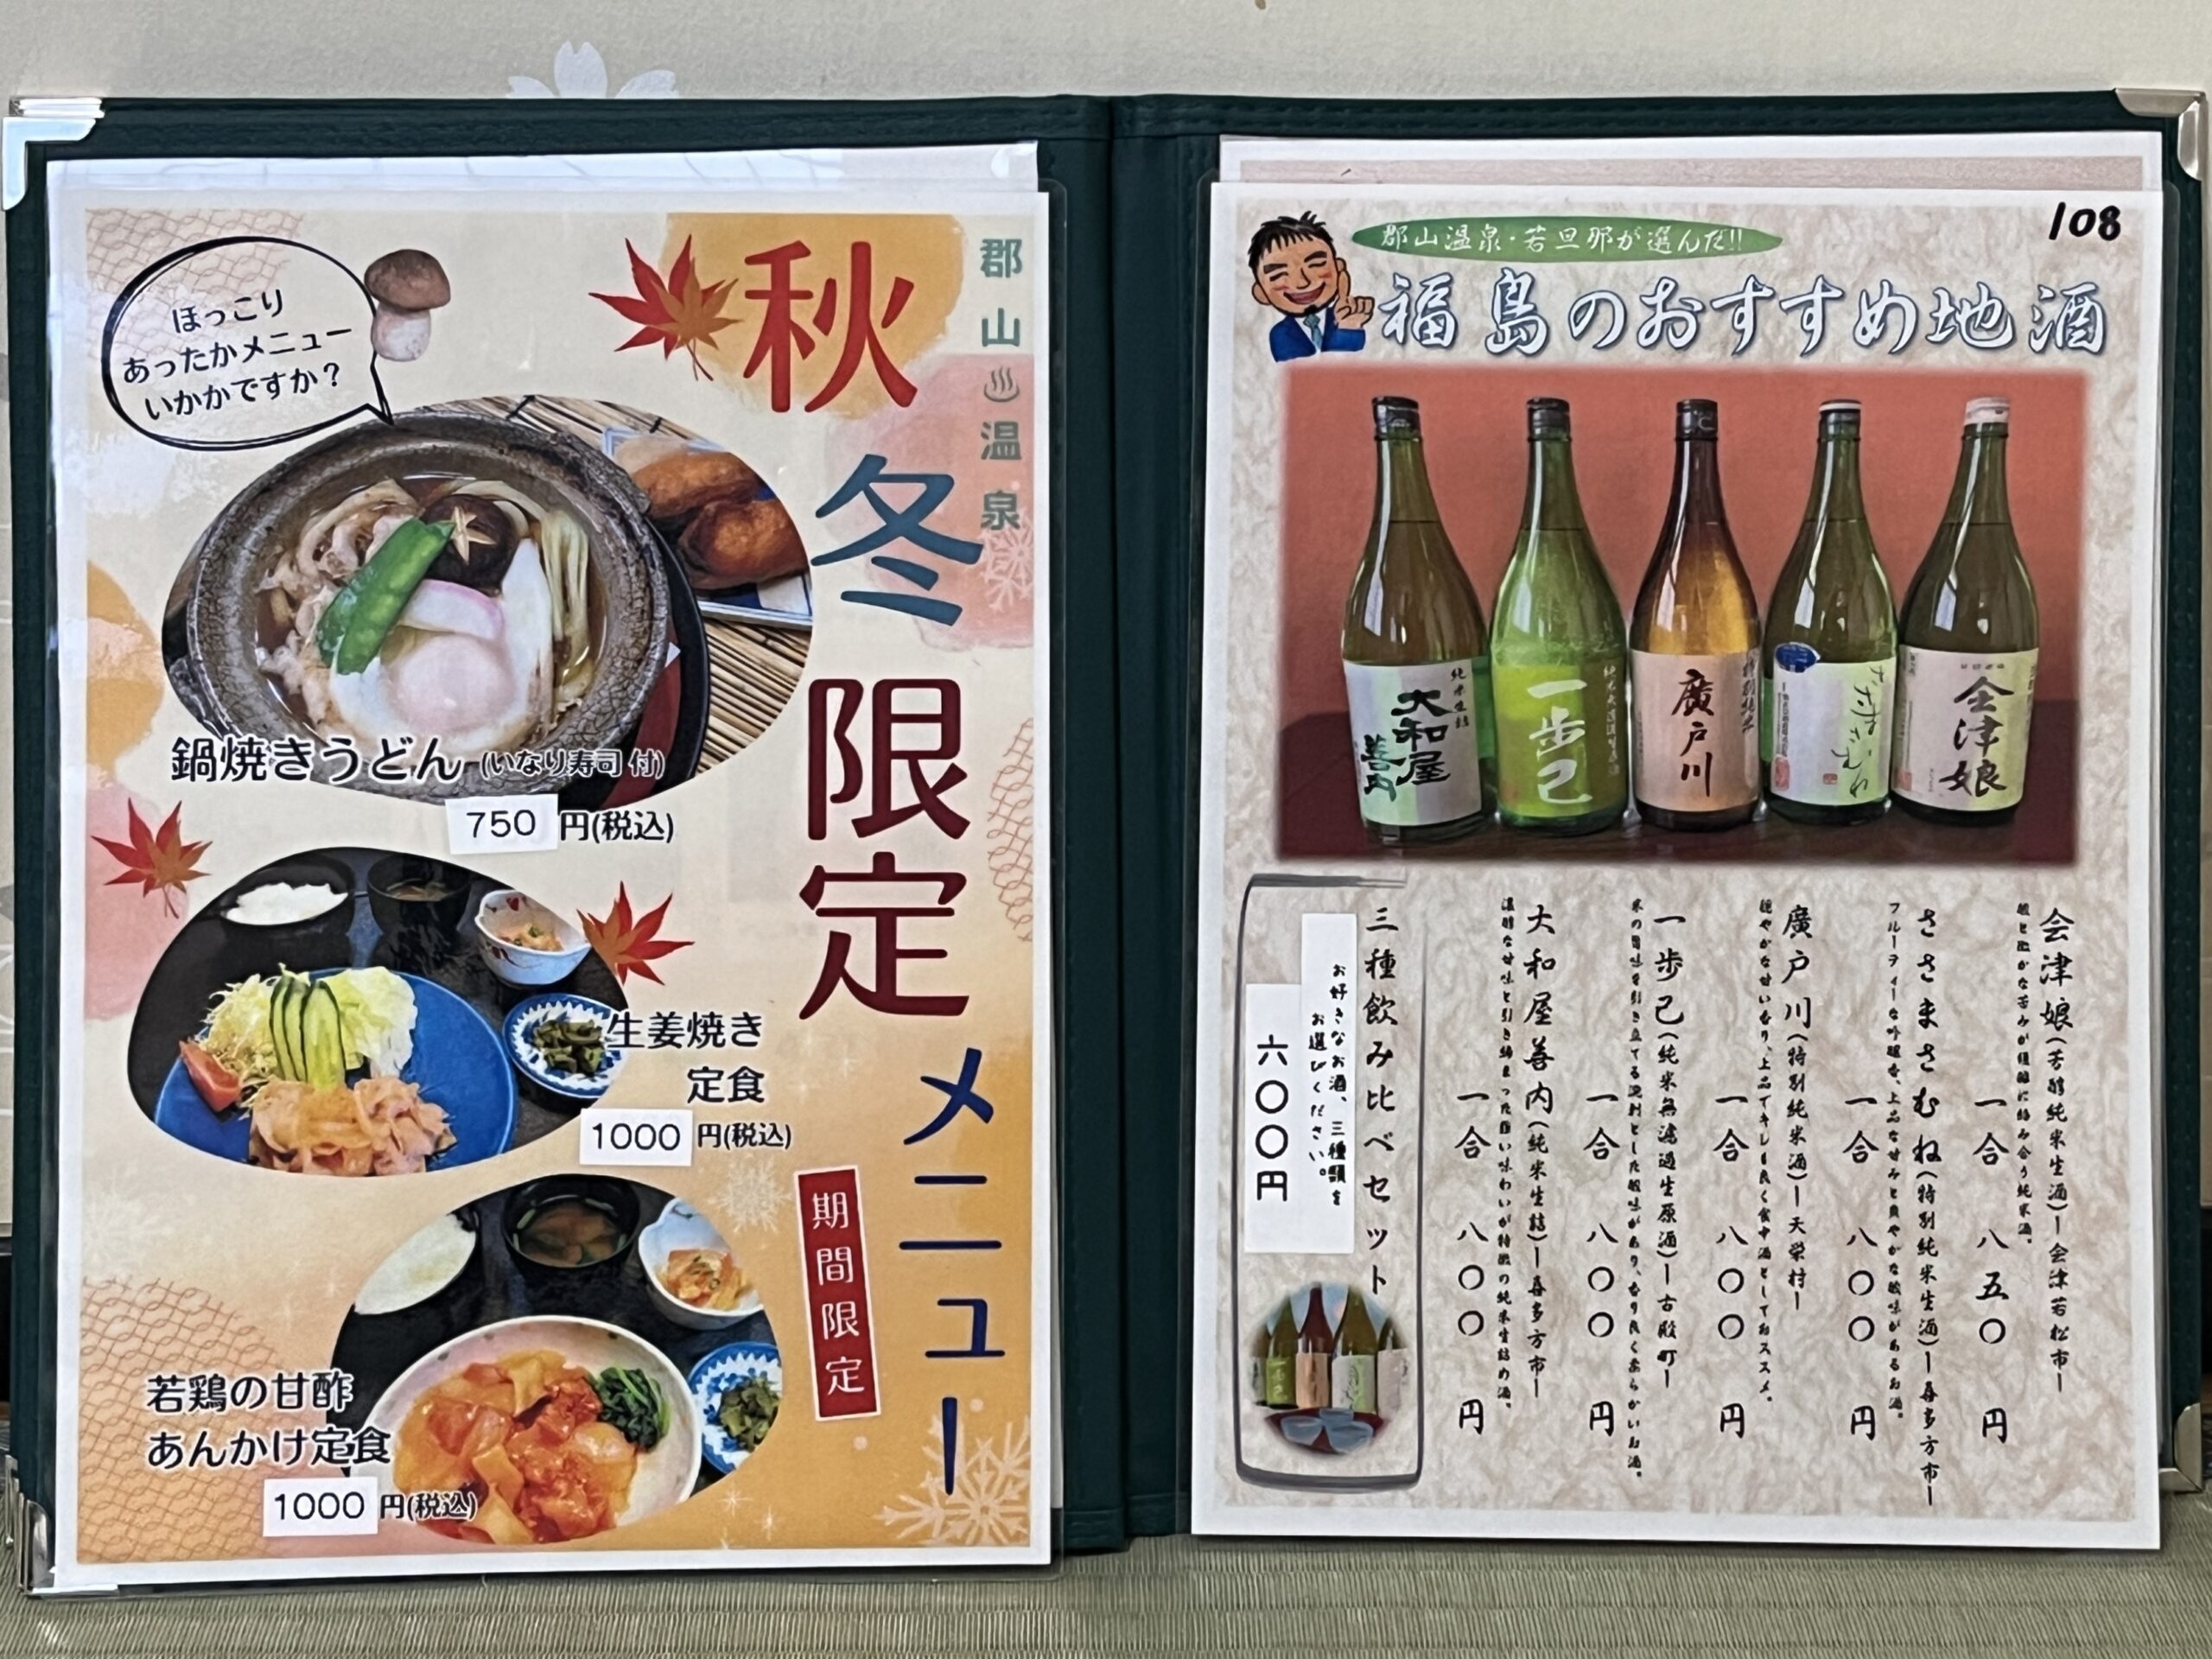 郡山温泉
秋冬限定メニュー
ほっこり
あったかメニュー
いかかですか？
鍋焼きうどん (いなり寿司 付)
750 円(税込)
生姜焼き
定食
1000 円(税込)
期間限定
若鶏の甘酢
あんかけ定食
1000 円(税込)
108
郡山温泉・若旦那が選んだ!!
福島のおすすめ地酒
純米生詰
大和屋
善内
一歩己
特別純米
廣戸川
ささまさむね
会津娘
会津娘(芳醇純米生酒)ー会津若松市ー
酸と微かな苦みが複雑に絡み合う純米酒。
一合 八五〇円
ささまさむね(特別純米生酒)ー喜多方市ー
フルーティーな吟醸香、上品な甘みと爽やかな酸味があるお酒。
一合 八〇〇円
廣戸川(特別純米酒)ー天栄村ー
穏やかな甘い香り、上品でキレも良く食中酒としておススメ。
一合 八〇〇円
一歩己(純米無濾過生原酒)ー古殿町ー
米の旨味を引き立てる溌剌とした酸味があり、香り良く柔らかいお酒。
一合 八〇〇円
大和屋善内(純米生詰)ー喜多方市ー
濃醇な甘味と引き締まった酸い味わいが特徴の純米生詰め酒。
一合 八〇〇円
三種飲み比べセット
お好きなお酒、三種類を
お選びください。
六〇〇円